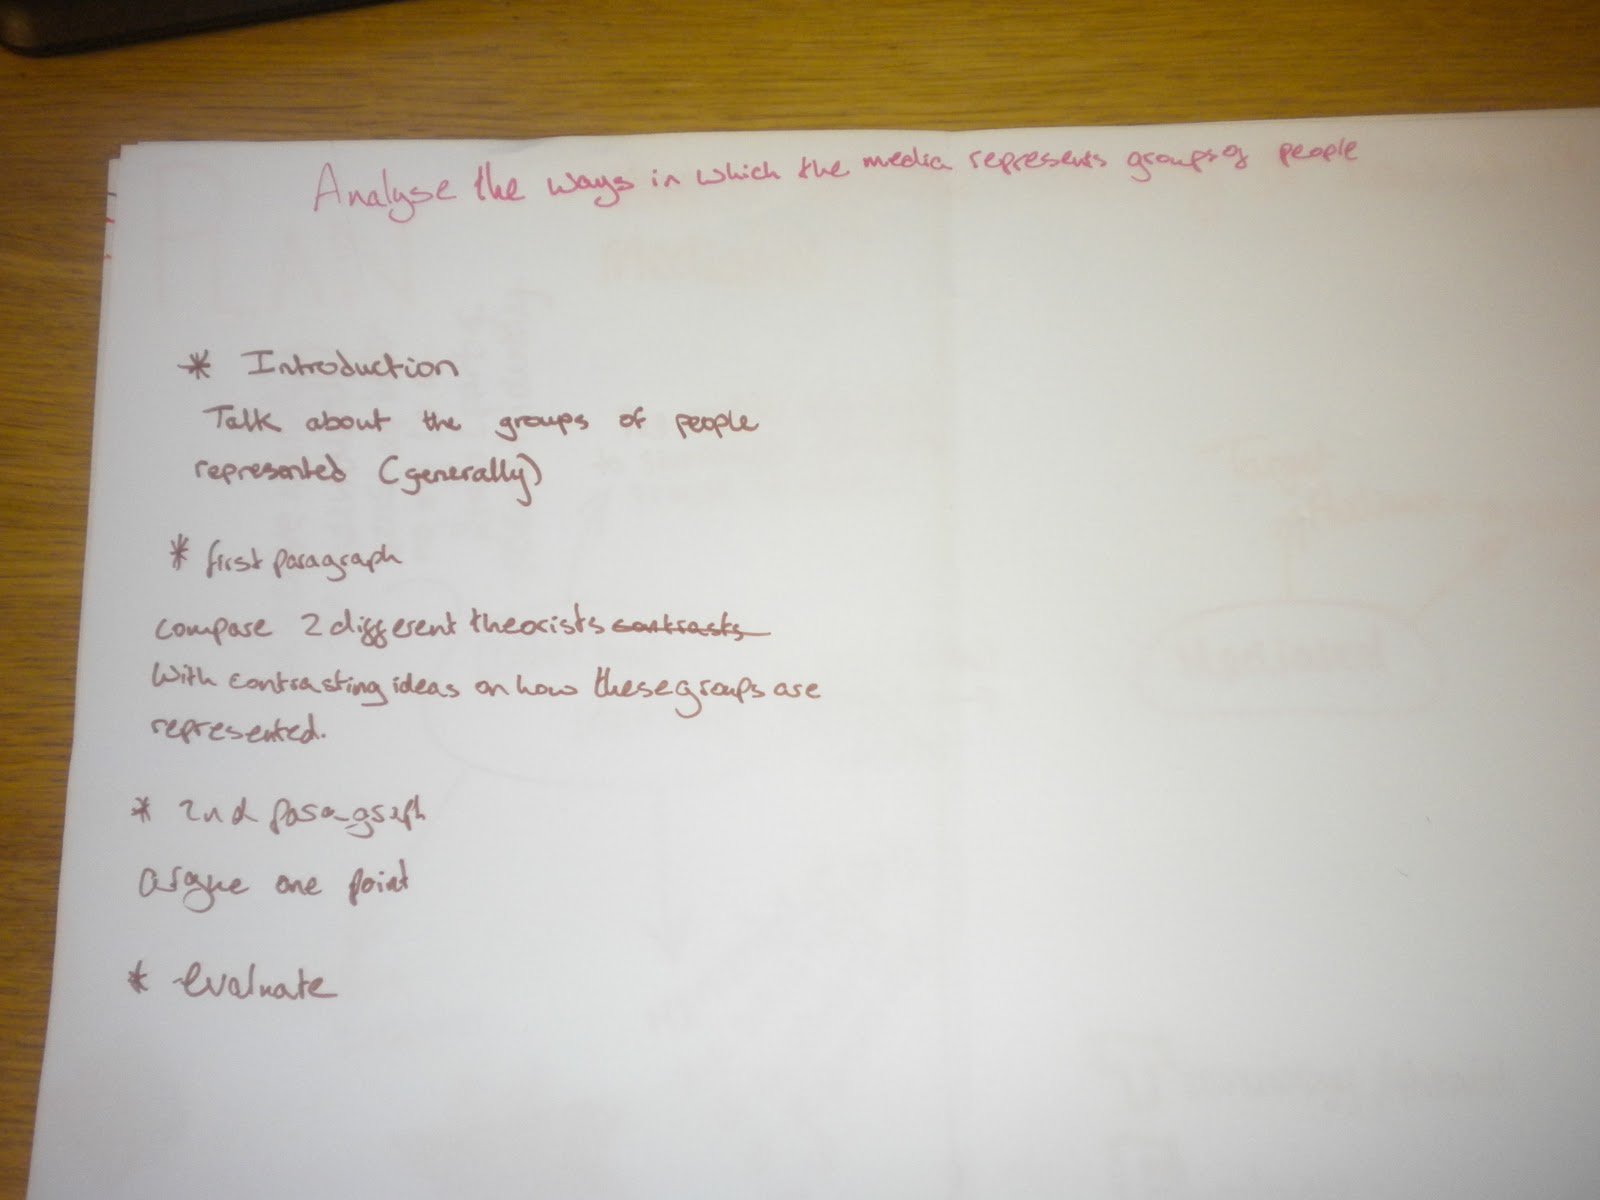 Analyse the ways in which the media represents groups of people
* Introduction
Talk about the groups of people
represented (generally)
* first paragraph
compare 2 different theorists contrasts
With contrasting ideas on how these groups are
represented.
* 2nd paragraph
argue one point
* evaluate